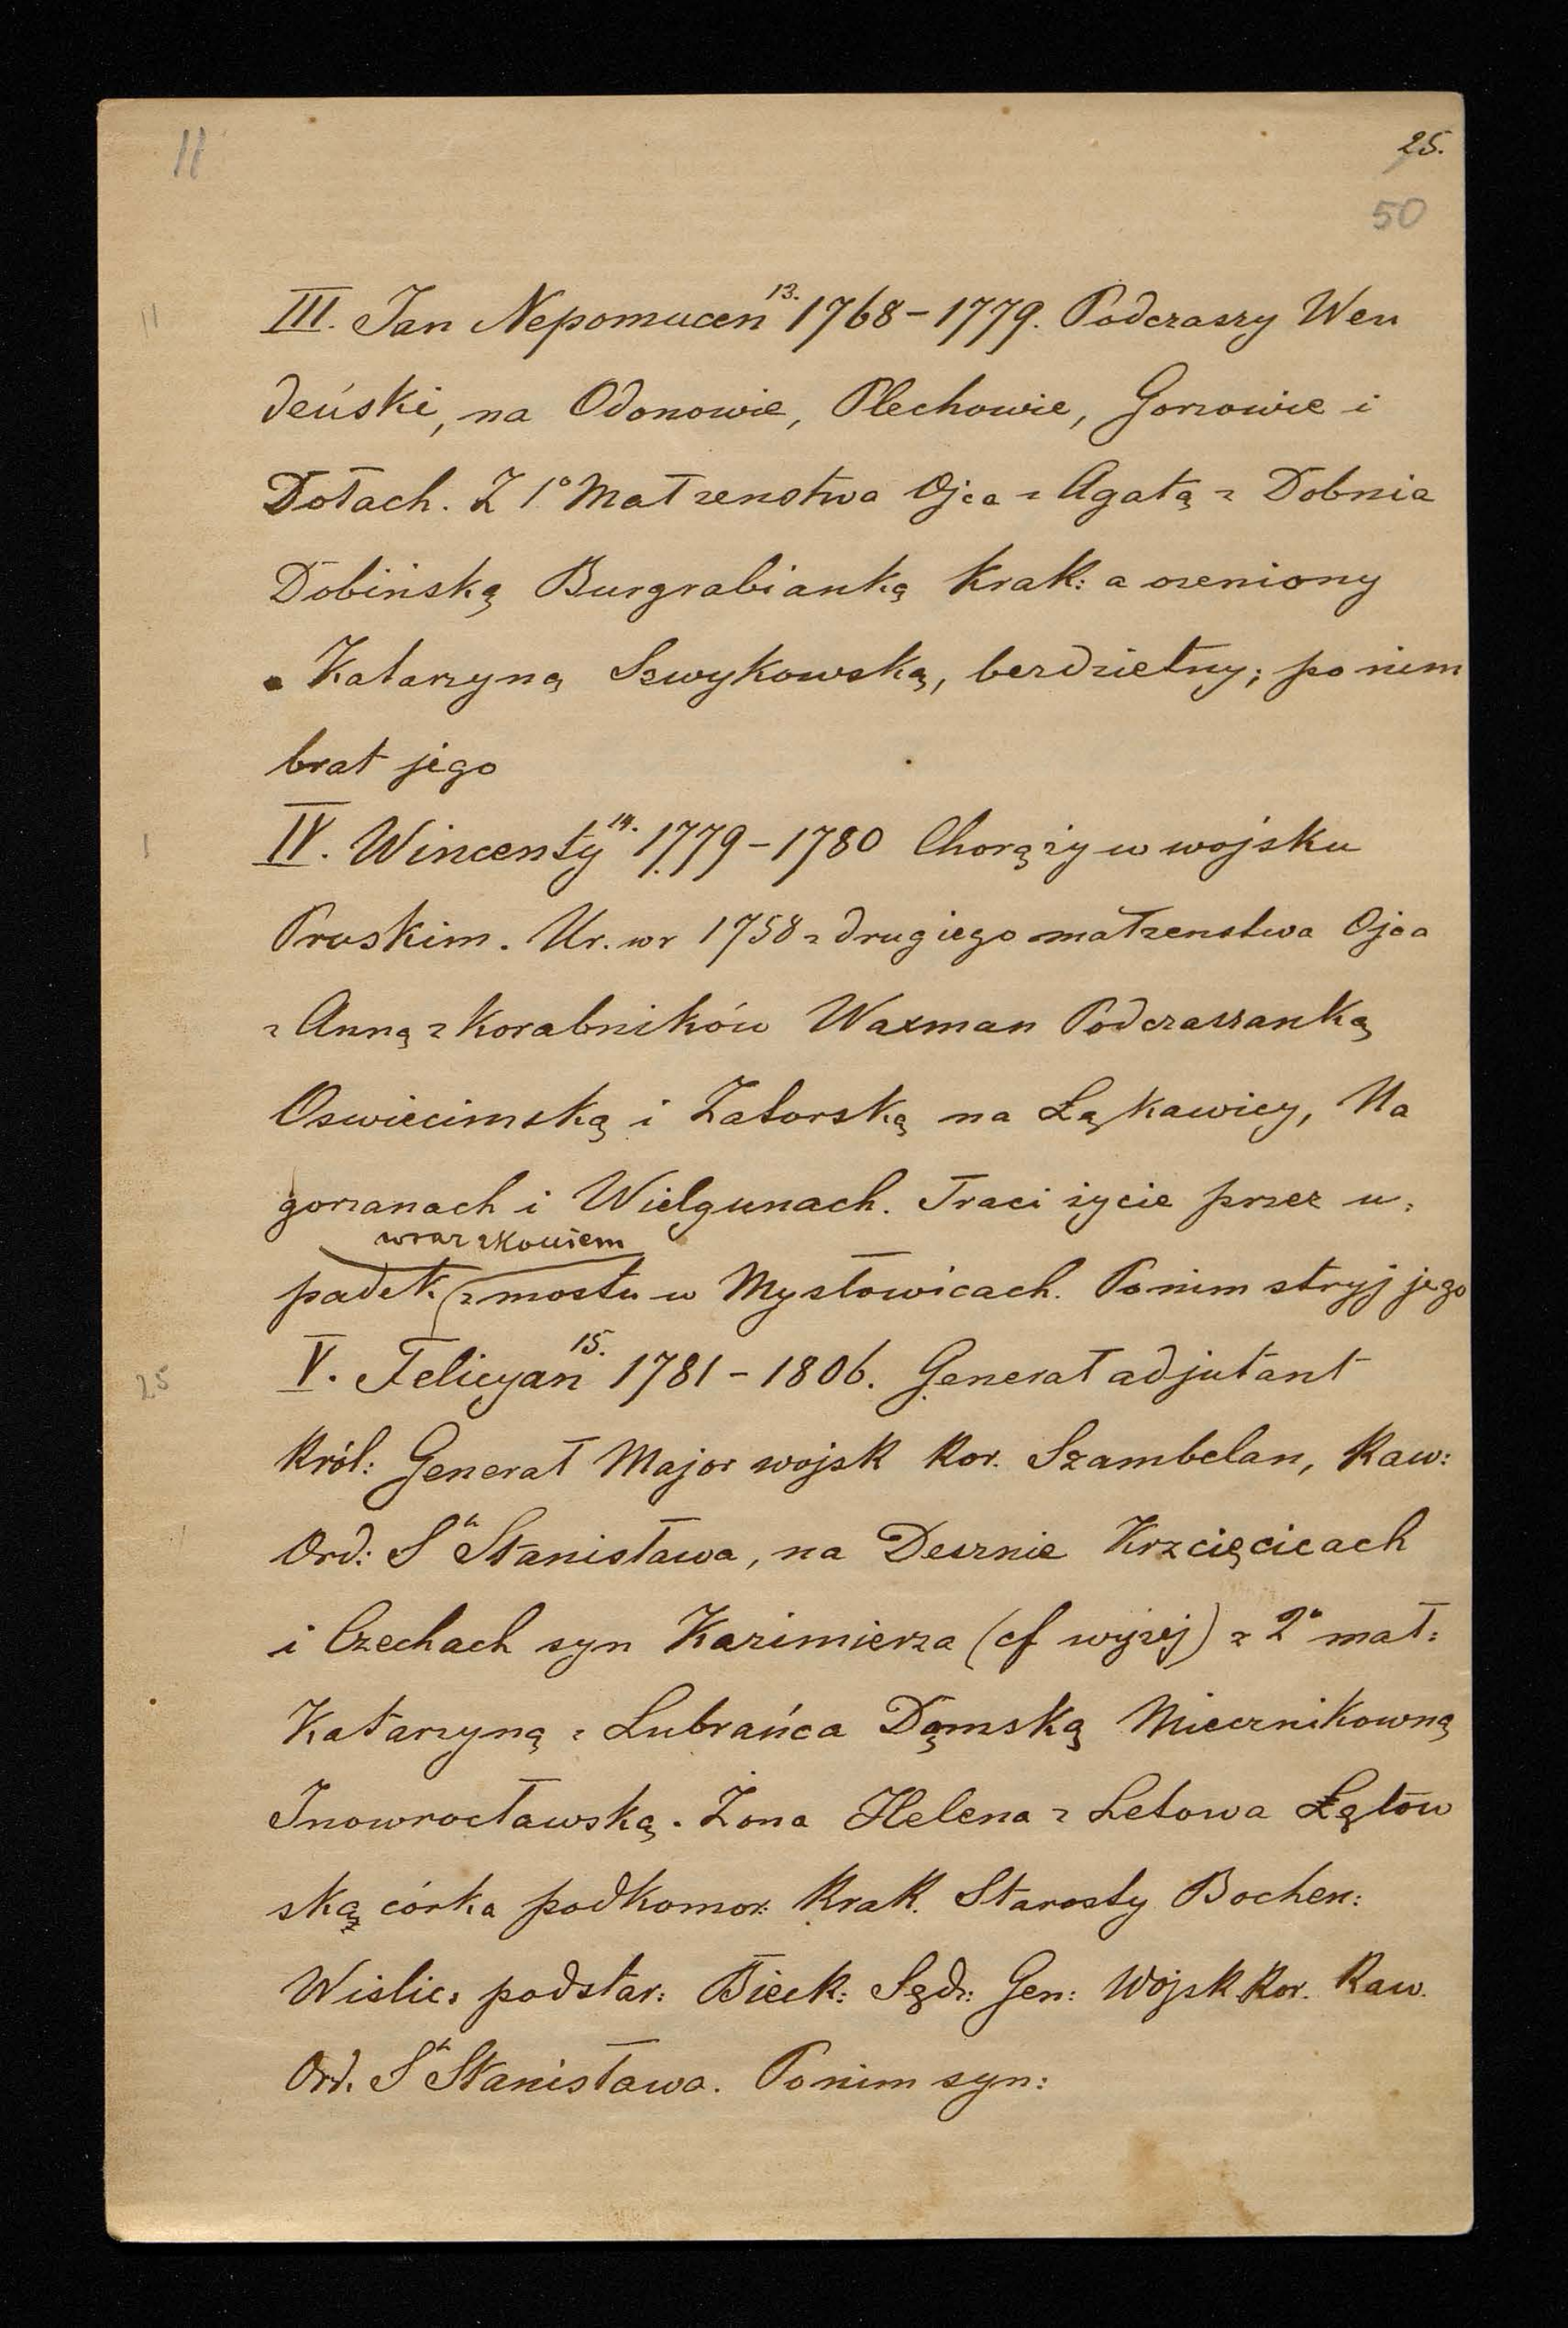 11
25.
50
11
III. Jan Nepomucen 13. 1768-1779. Podczaszy Wen
deński, na Odonowie, Plechowie, Gorzowie i
Dołach. Z 1° Małzenstwa Ojca z Agatą z Dobnia
Dobińską Burgrabianką Krak: a ozeniony
z Katarzyną Szwykowską, bezdzietny; po niem
brat jego
1
IV. Wincenty 14. 1779-1780 Chorązy w wojsku
Pruskim. Ur. w r 1758 z drugiego małzenstwa Ojca
z Anną z Korabników Waxman Podczaszanką
Oswiecimską i Zatorską na Łąkawicy, Na
gorzanach i Wielgunach. Traci życie przez u:
wraz z koniem
padek z mostu w Mysłowicach. Po nim stryj jego
25
V. Felicyan 15. 1781-1806. Generał adjutant
Król: Generał Major wojsk Kor. Szambelan, Kaw:
Ord: Sº Stanisława, na Desznie Krzcięcicach
i Czechach syn Kazimierza (cf wyżej) z 2° mał:
Katarzyną z Lubrańca Dąmską Miecznikowną
Inowrocławską. Żona Helena z Letowa Łętow
ską córka podkomor: Krak. Starosty Bochen:
Wislic: podstar: Bieck: Sędz: Gen: Wojsk Kor. Kaw.
Ord. Sº Stanisława. Po nim syn: